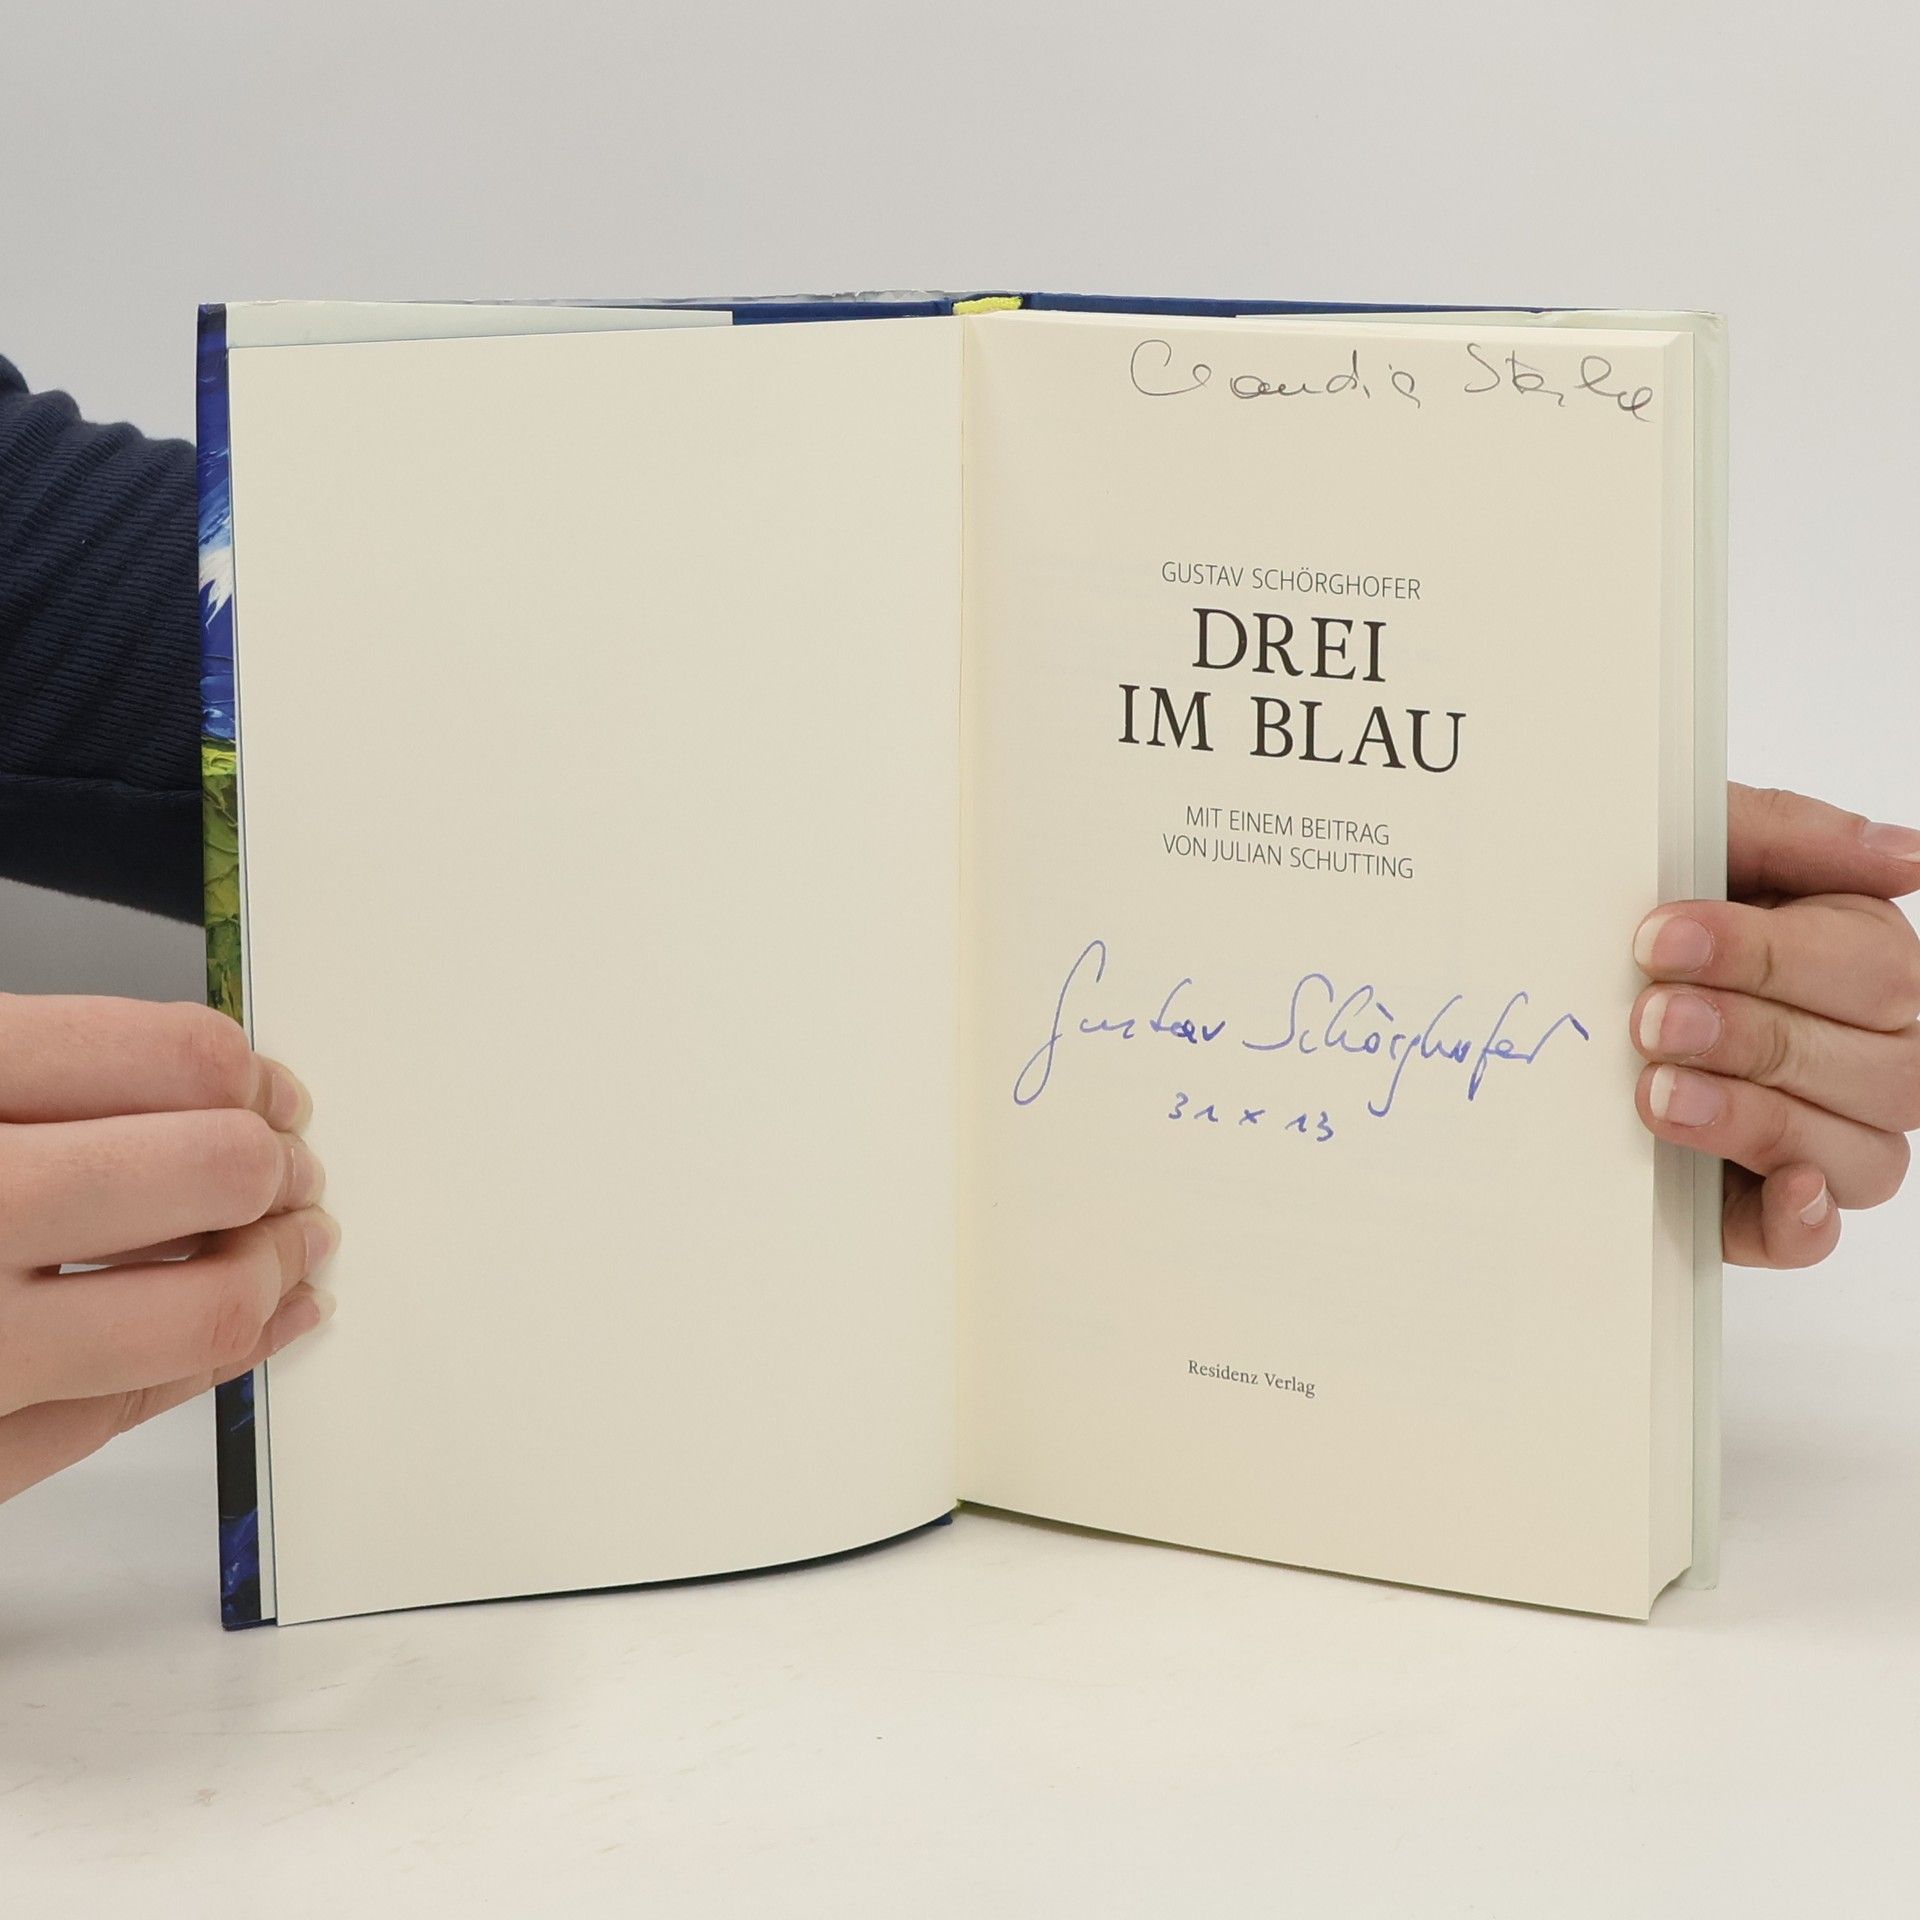 Claudia
GUSTAV SCHÖRGHOFER
DREI
IM BLAU
MIT EINEM BEITRAG
VON JULIAN SCHUTTING
Gustav Schörghofer
31 x 13
Residenz Verlag